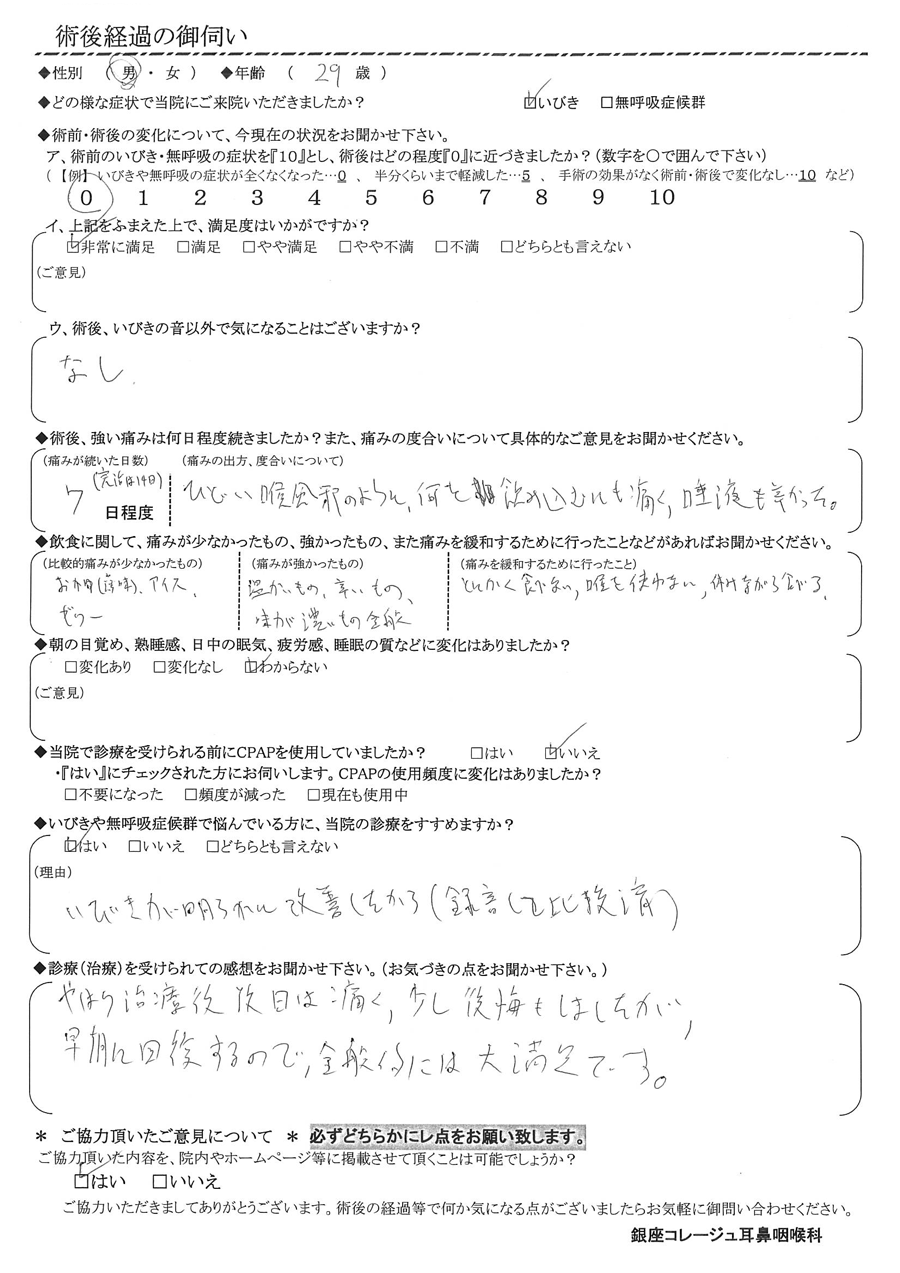 術後経過の御伺い
◆性別 （ 男 ・ 女 ） ◆年齢 （ 29 歳 ）
◆どの様な症状で当院にご来院いただきましたか？ □いびき □無呼吸症候群
◆術前・術後の変化について、今現在の状況をお聞かせ下さい。
ア、術前のいびき・無呼吸の症状を『10』とし、術後はどの程度『0』に近づきましたか？（数字を〇で囲んで下さい）
（ 【例】 いびきや無呼吸の症状が全くなくなった…0 、 半分くらいまで軽減した…5 、 手術の効果がなく術前・術後で変化なし…10 など）
0 1 2 3 4 5 6 7 8 9 10
イ、上記をふまえた上で、満足度はいかがですか？
□非常に満足 □満足 □やや満足 □やや不満 □不満 □どちらとも言えない
（ご意見）
ウ、術後、いびきの音以外で気になることはございますか？
なし.
◆術後、強い痛みは何日程度続きましたか？また、痛みの度合いについて具体的なご意見をお聞かせください。
（痛みが続いた日数） （痛みの出方、度合いについて）
(完治は14日)
7 日程度 ひどい喉風邪のように、何を飲み込むにも痛く、唾液も辛かった。
◆飲食に関して、痛みが少なかったもの、強かったもの、また痛みを緩和するために行ったことなどがあればお聞かせください。
（比較的痛みが少なかったもの） （痛みが強かったもの） （痛みを緩和するために行ったこと）
おかゆ(薄味)、アイス、 温かいもの、辛いもの、 とにかく食べない、喉を使わない、休みながら食べる、
ゼリー 味が濃いもの全般
◆朝の目覚め、熟睡感、日中の眠気、疲労感、睡眠の質などに変化はありましたか？
□変化あり □変化なし □わからない
（ご意見）
◆当院で診療を受けられる前にCPAPを使用していましたか？ □はい □いいえ
・『はい』にチェックされた方にお伺いします。CPAPの使用頻度に変化はありましたか？
□不要になった □頻度が減った □現在も使用中
◆いびきや無呼吸症候群で悩んでいる方に、当院の診療をすすめますか？
□はい □いいえ □どちらとも言えない
（理由）
いびきが明らかに改善したから(録音して比較済)
◆診療（治療）を受けられての感想をお聞かせ下さい。（お気づきの点をお聞かせ下さい。）
やはり治療後次日は痛く、少し後悔もしましたが、
早期に回復するので、全般的には大満足です。
＊ ご協力頂いたご意見について ＊ 必ずどちらかにレ点をお願い致します。
ご協力頂いた内容を、院内やホームページ等に掲載させて頂くことは可能でしょうか？
□はい □いいえ
ご協力いただきましてありがとうございます。術後の経過等で何か気になる点がございましたらお気軽に御問い合わせください。
銀座コレージュ耳鼻咽喉科